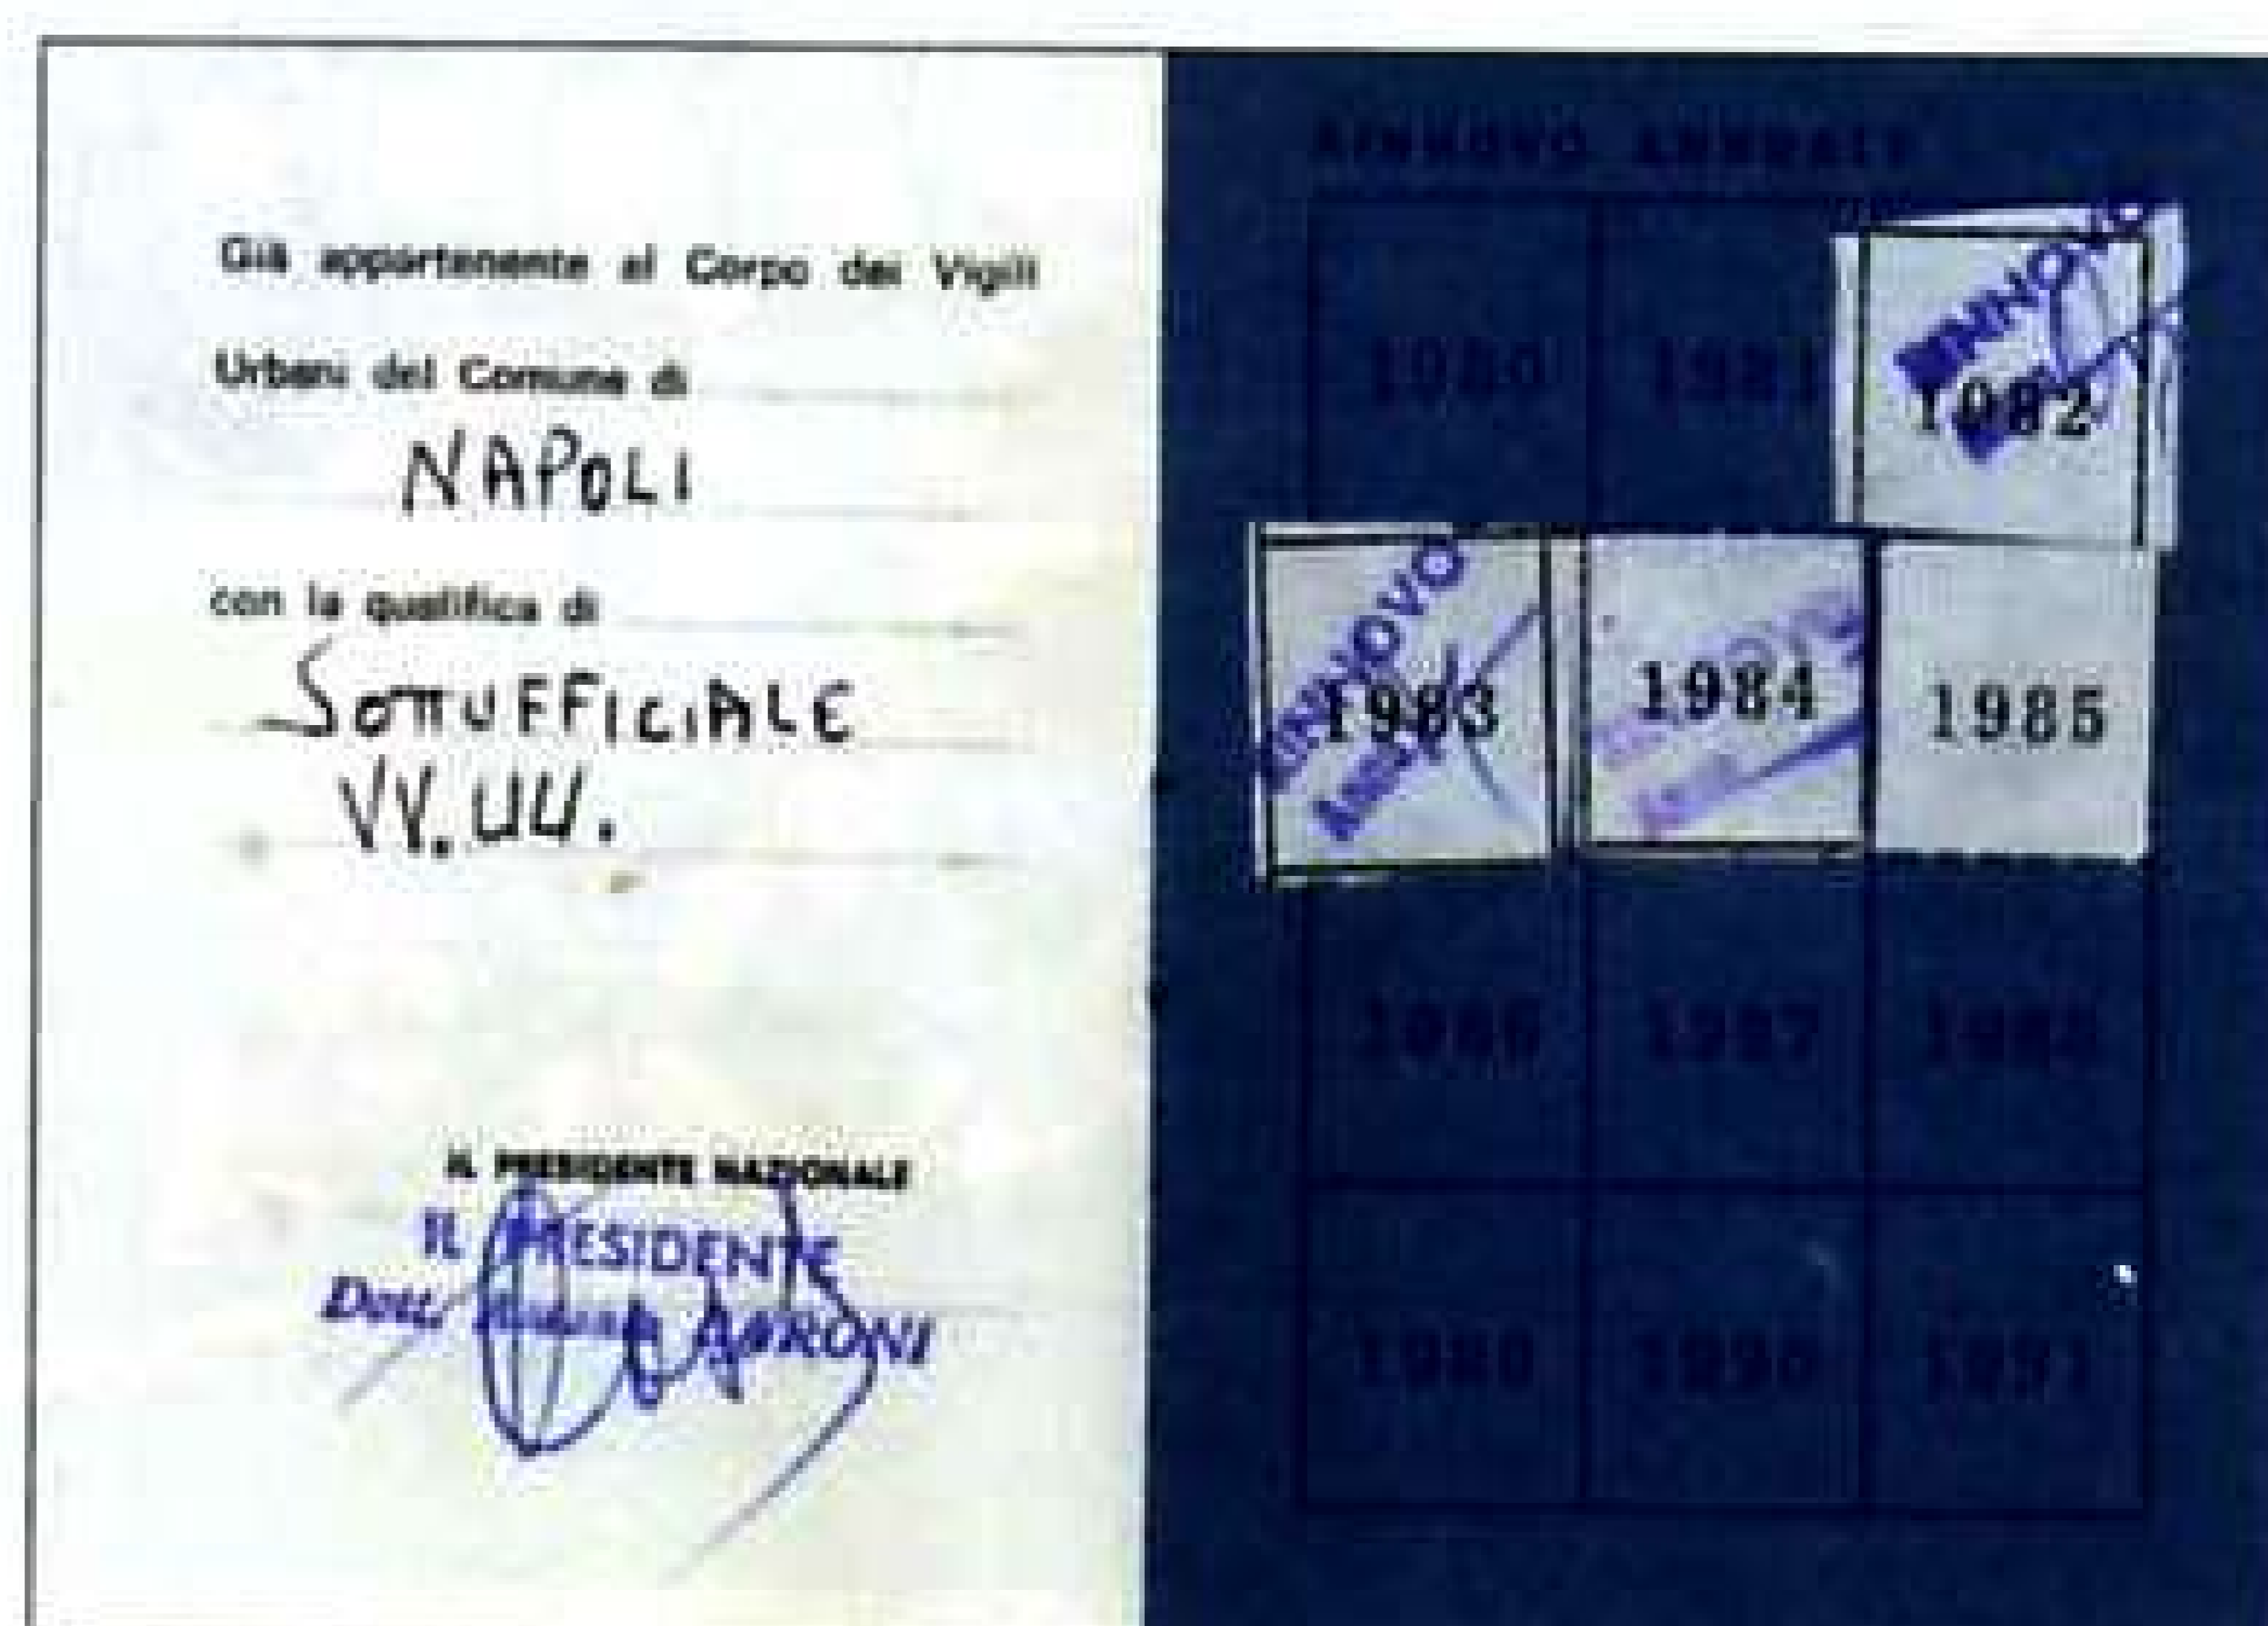 Già appartenente al Corpo dei Vigili
Urbani del Comune di
NAPOLI
con la qualifica di
SOTTUFFICIALE
VV.UU.
IL PRESIDENTE NAZIONALE
IL PRESIDENTE
Dott.
RINNOVO ANNUALE
1980 1981 RINNOVO 1982
RINNOVO 1983 1984 1985
1986 1987 1988
1989 1990 1991